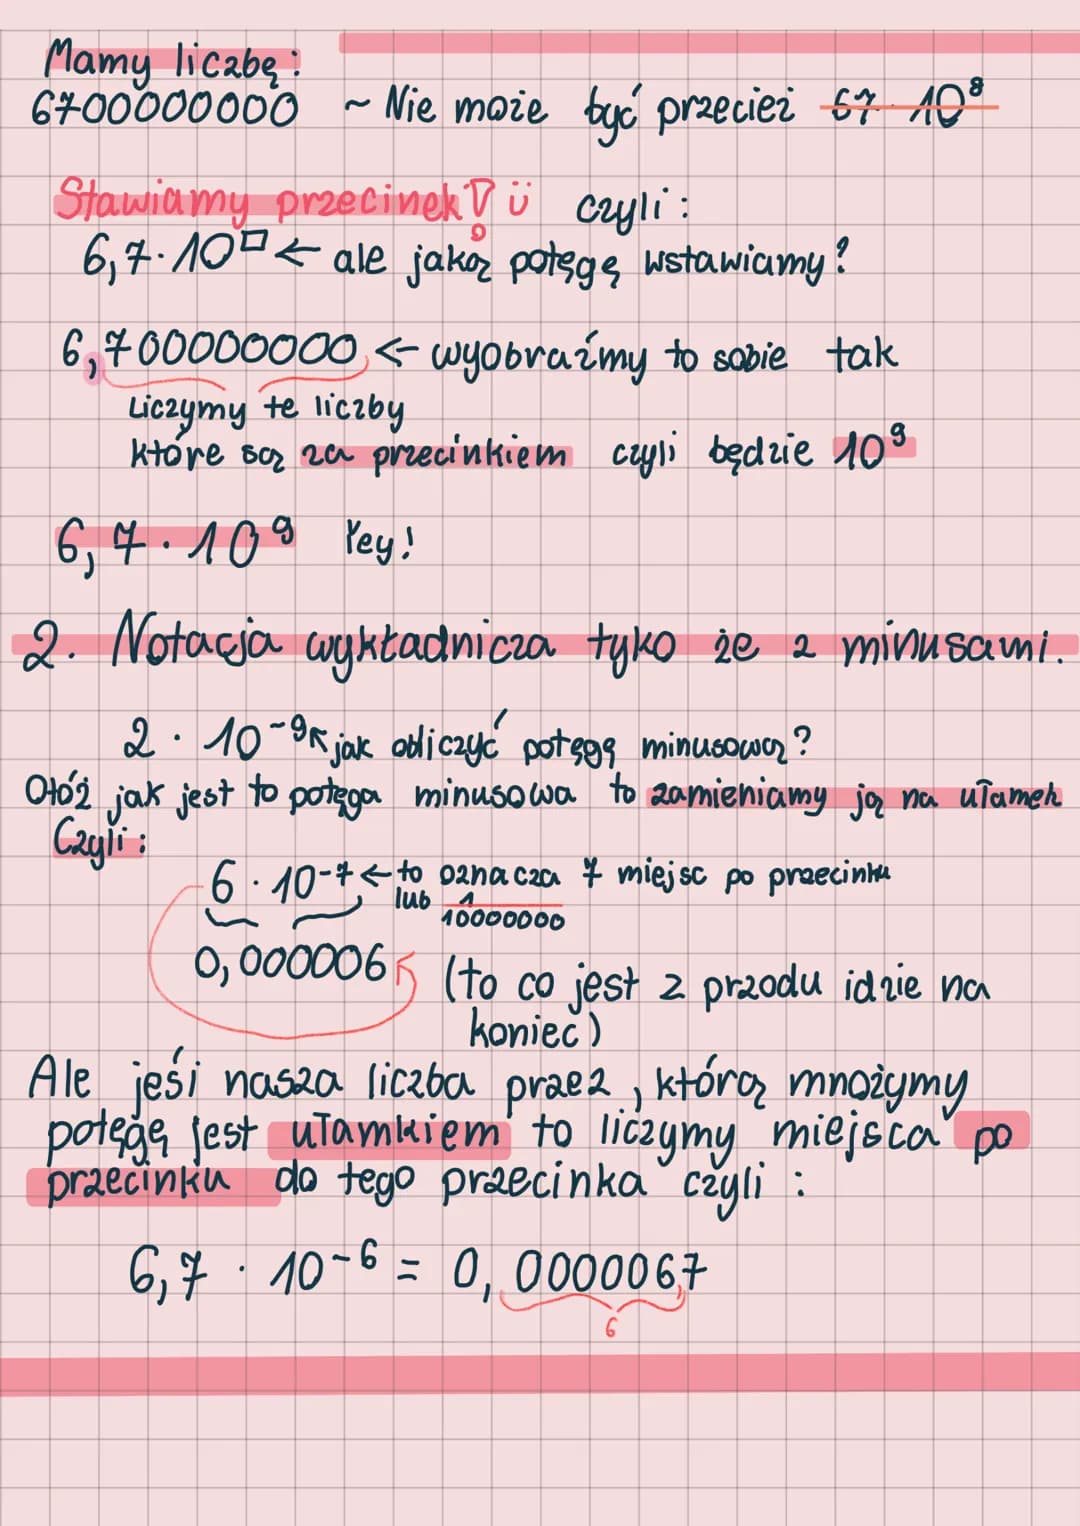 Mamy liczbę:
6700000000 ~ Nie może być przecież 67 · 10⁸
Stawiamy przecinek! ü czyli:
6,7 · 10□ ← ale jaką potęgę wstawiamy?
6,700000000 ← wyobraźmy to sobie tak
Liczymy te liczby
które są za przecinkiem czyli będzie 10⁹
6,7 · 10⁹ Yey!
2. Notacja wykładnicza tyko że z minusami.
2 · 10⁻⁹ ↖ jak obliczyć potęgę minusową?
Otóż jak jest to potęga minusowa to zamieniamy ją na ułamek
Czyli:
6 · 10⁻⁷ ← to oznacza 7 miejsc po przecinku
lub 1/10000000
0,000006
(to co jest z przodu idzie na
koniec)
Ale jeśi nasza liczba przez, którą mnożymy
potęgę jest ułamkiem to liczymy miejsca po
przecinku do tego przecinka czyli:
6,7 · 10⁻⁶ = 0,000006,7
6